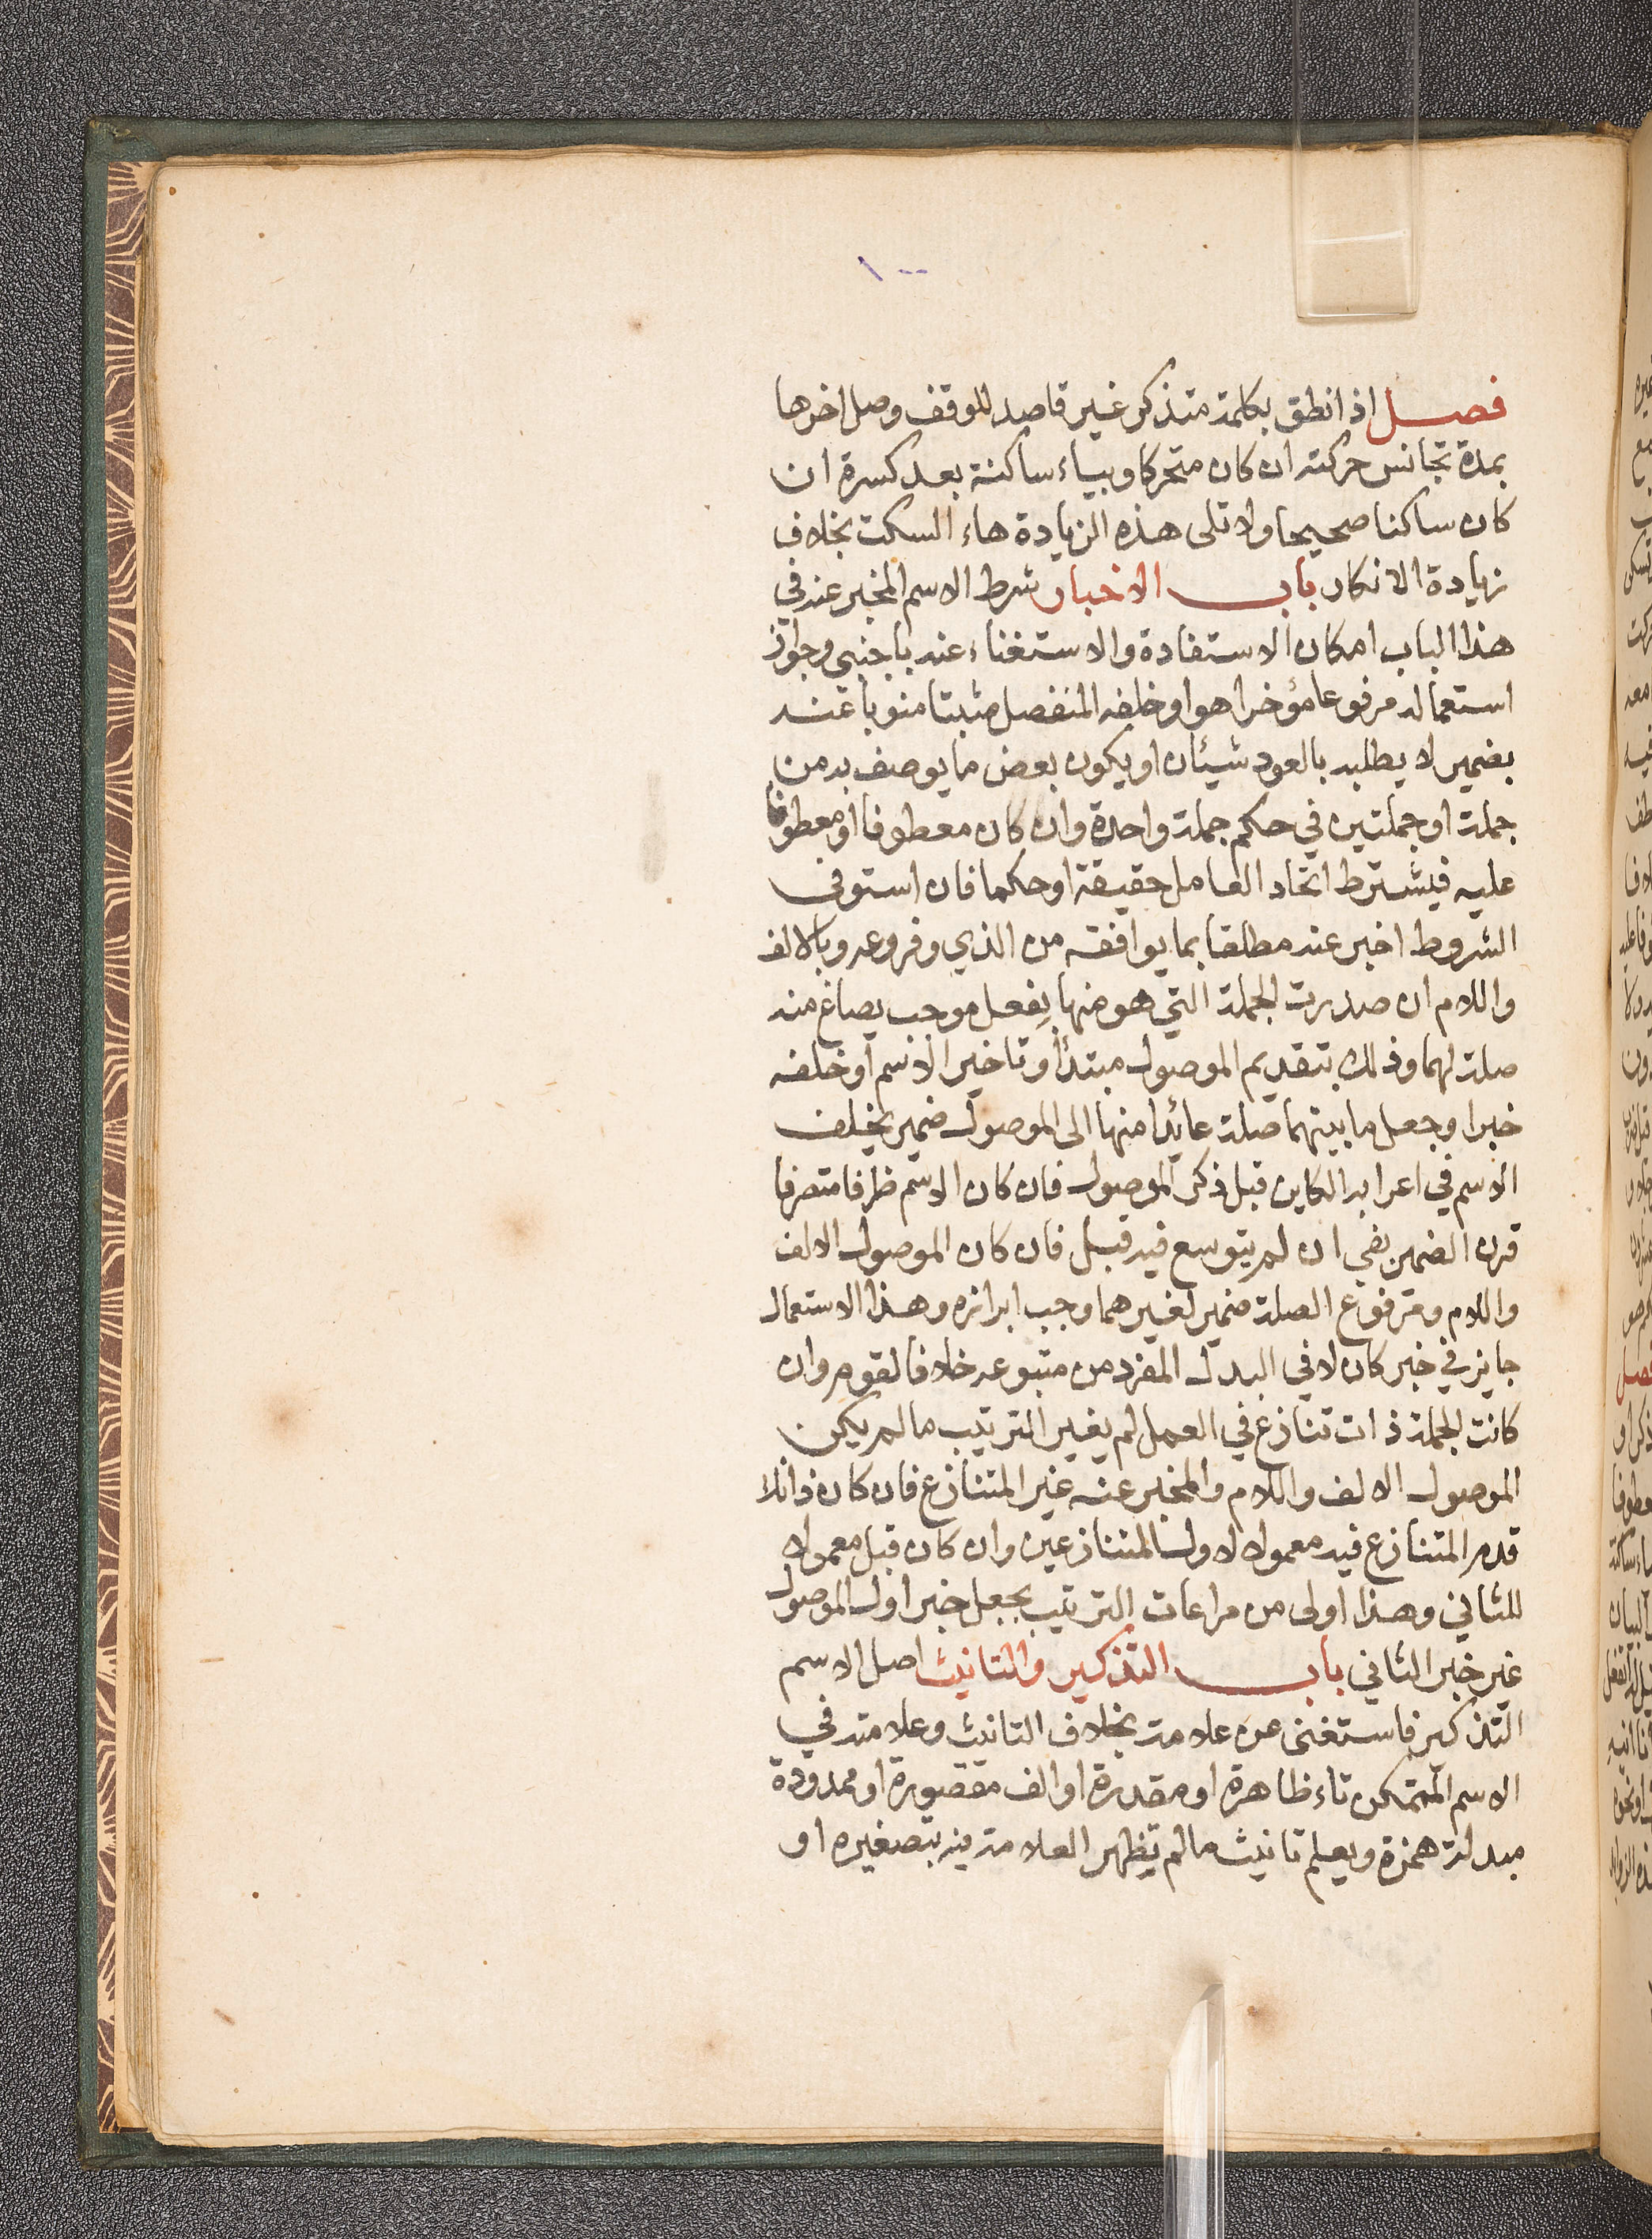 ١٠٠
فصل اذا نطق بكلمة متذكر غير قاصد للوقف وصل اخرها
بمدة تجانس حركته ان كان متحركا وبياء ساكنة بعد كسرة ان
كان ساكنا صحيحا ولا تلى هذه الزيادة هاء السكت بخلاف
زيادة الانكار باب الاخبار شرط الاسم المخبر عنه في
هذا الباب امكان الاستفادة والاستغناء عنه باجنبي وجواز
استعماله مرفوعا مؤخرا هو او خلفه المنفصل مثبتا منوبا عنه
بضمير لا يطلبه بالعود شيئان او يكون بعض ما يوصف به من
جملة او جملتين في حكم جملة واحدة وان كان معطوفا او معطوفا
عليه فيشترط اتحاد العامل حقيقة او حكما فان استوفى
الشروط اخبر عنه مطلقا بما يوافقه من الذي وفروعه وبالالف
واللام ان صدرت الجملة التي هو منها بفعل موجب يصاغ منه
صلة لهما وذلك بتقديم الموصول مبتدأ وتاخير الاسم او خلفه
خبرا وجعل ما بينهما صلة عائدا منها الى الموصول ضمير يخلف
الاسم في اعرابه الكاين قبل ذكر الموصول فان كان الاسم ظرفا متصرفا
قرن الضمير بفي ان لم يتوسع فيه قبل فان كان الموصول الالف
واللام ومرفوع الصلة ضمير لغيرهما وجب ابرازه وهذا الاستعمال
جايز في خبر كان لا في البدل المفرد من متبوعه خلافا لقوم وان
كانت الجملة ذات تنازع في العمل لم يغير الترتيب ما لم يكن
الموصول الالف واللام والمخبر عنه غير المتنازع فان كان ذانك
قدم المتنازع فيه معمولا لاول المتنازعين وان كان قبل معمولا
للثاني وهذا اولى من مراعات الترتيب بجعل خبر اول الموصول
غير خبر الثاني باب التذكير والتانيث اصل الاسم
التذكير فاستغنى عن علامة بخلاف التانيث وعلامته في
الاسم المتمكن تاء ظاهرة او مقدرة او الف مقصورة او ممدودة
مبدلة همزة ويعلم تانيث ما لم تظهر العلامة فيه بتصغيره او